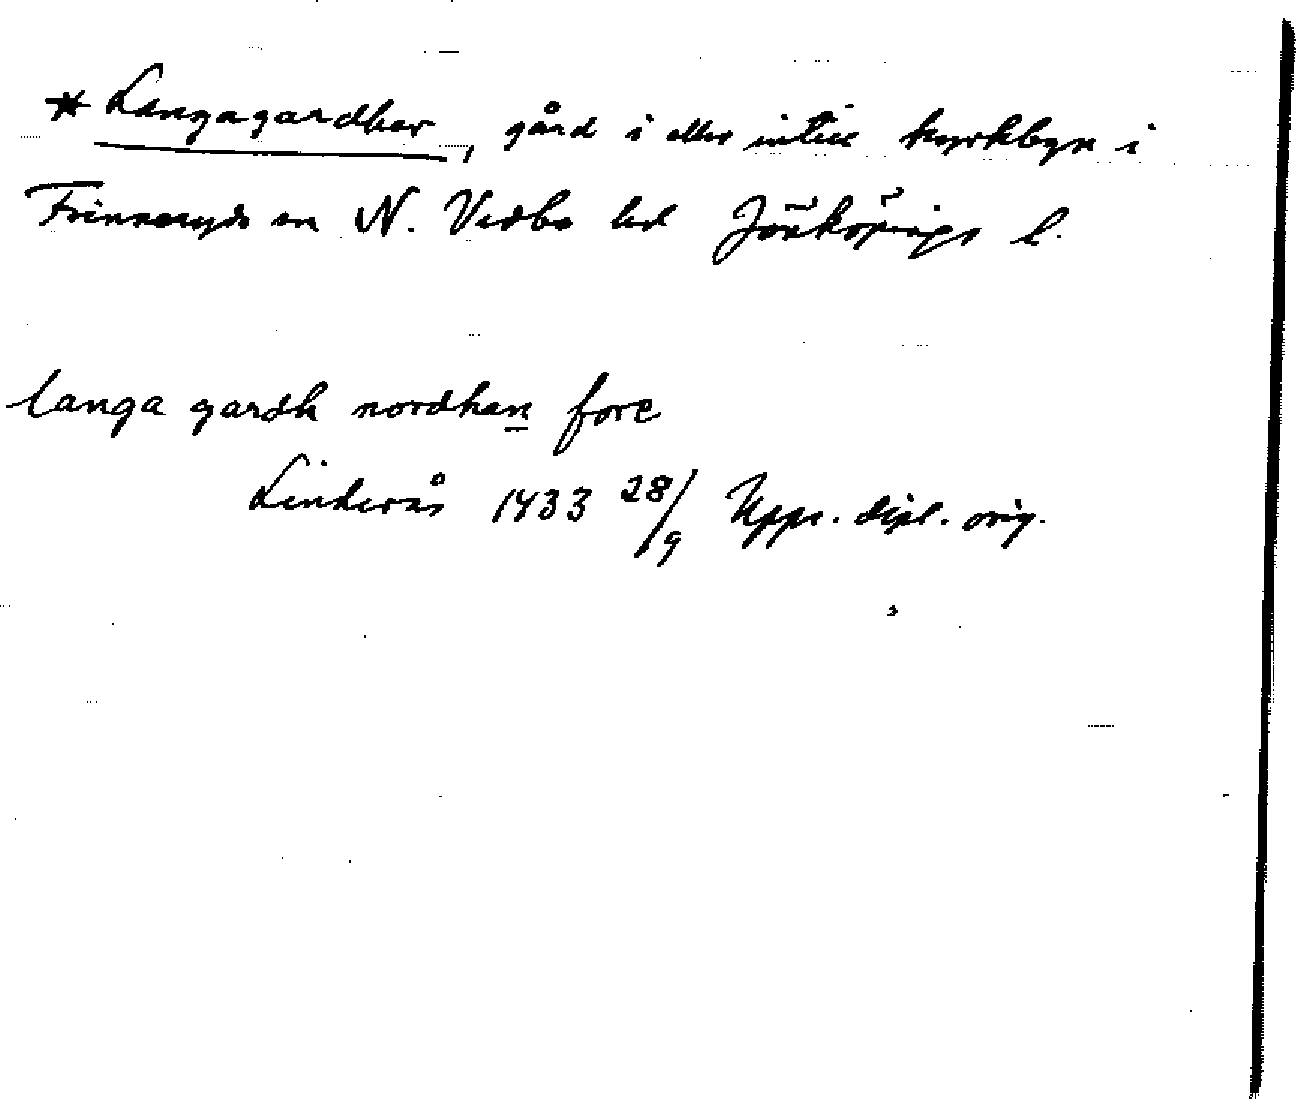 * Langagardher, gård i eller intill kyrkbyn i
Frinnaryds sn N. Vedbo hd Jönköpings l.
langa gardh nordhan fore
Linderås 1433 28/9 Upps. dipl. orig.